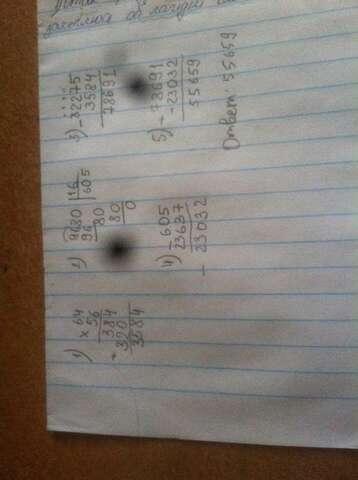 1) × 64
56
384
+ 320
3584
2) 9680 | 16
96 605
80
80
0
3) - 82275
3584
78691
4) - 605
23637
- 23032
5) - 78691
- 23032
55659
Ответ: 55659